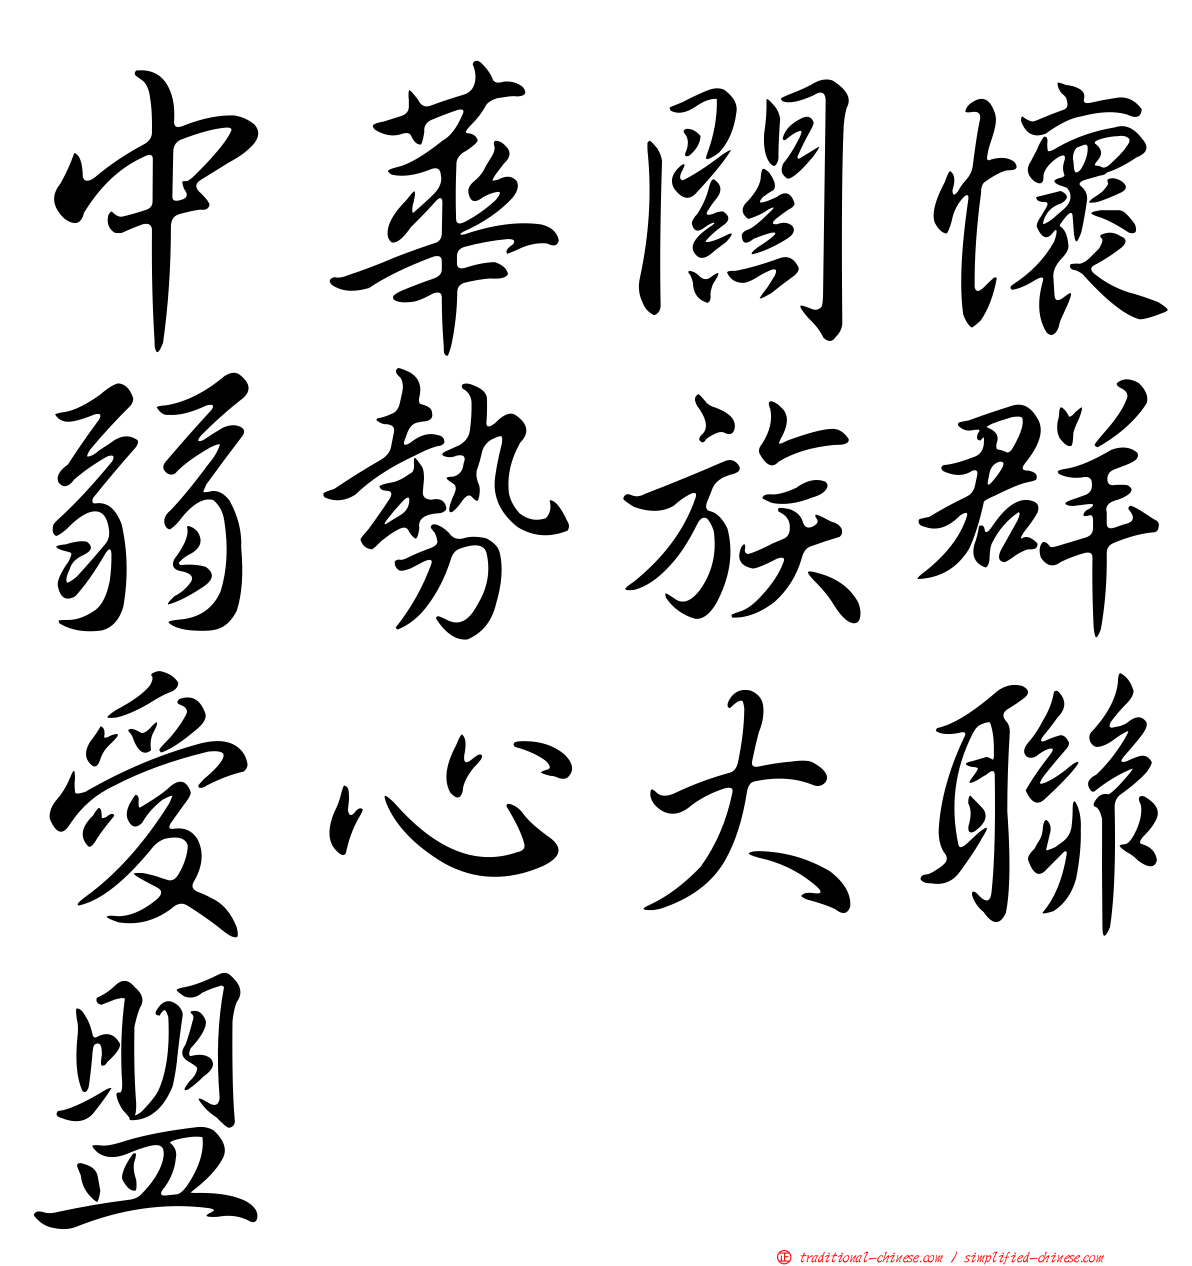 中華關懷
弱勢族群
愛心大聯
盟
正 traditional-chinese.com / simplified-chinese.com